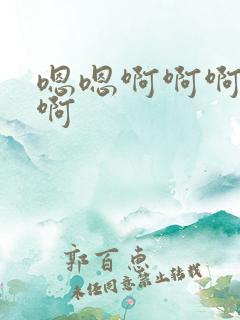 嗯嗯啊啊啊
啊
郭百惠
未经同意禁止转载